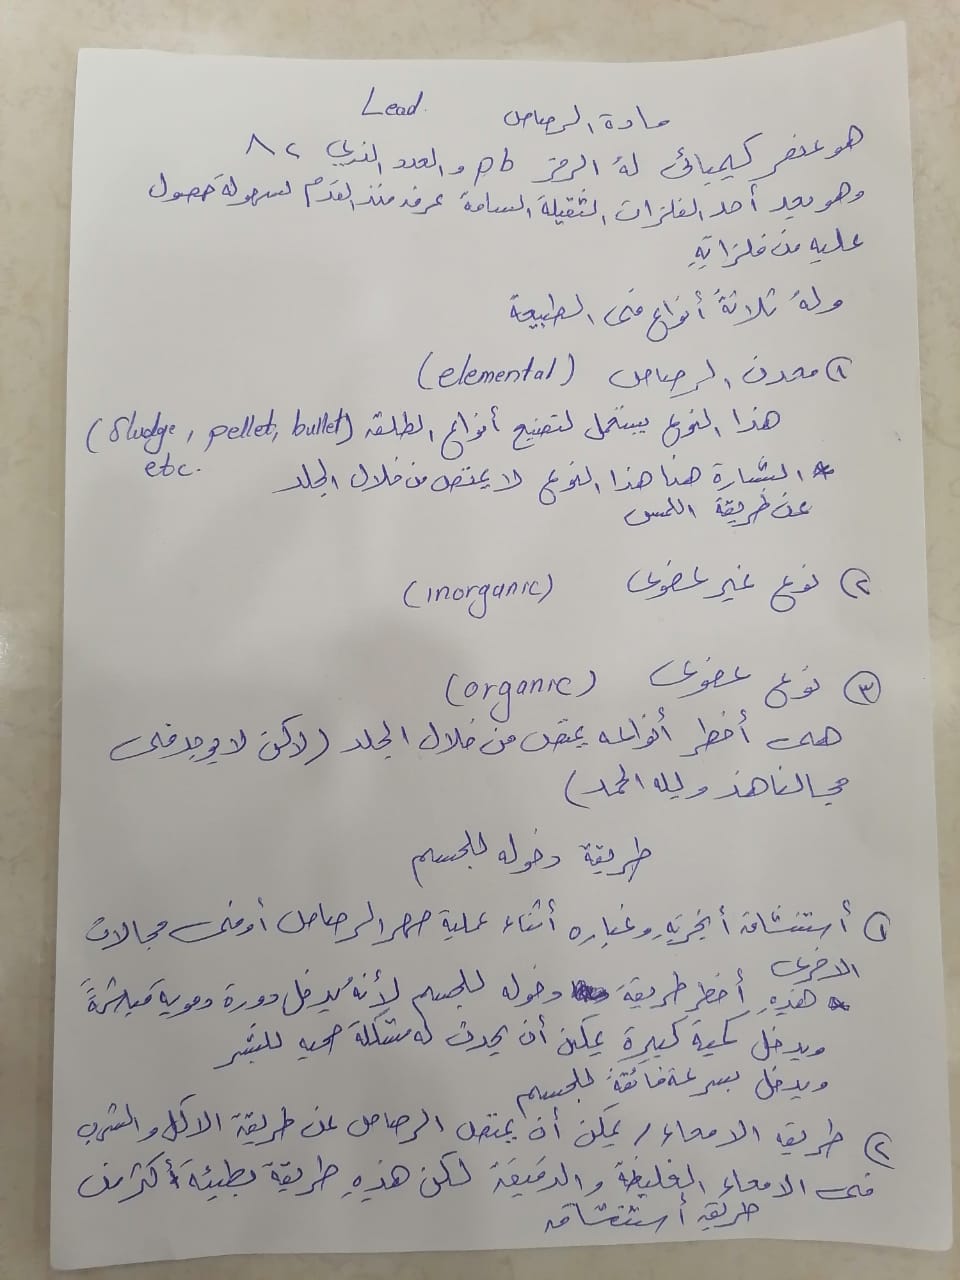 مادة الرصاص Lead
هو عنصر كيميائى لهُ الرمز Pb والعدد الذري ٨٢
وهو يعد أحد الفلزات الثقيلة السامة عرف منذ القدم لسهولة حصول
عليه من فلزاتِهِ
ولهُ ثلاثةُ أنواع فى الطبيعة
١ معدن الرصاص (elemental)
هذا النوع يستعمل لتصنيع أنواع الطلقة (Sludge, pellet, bullet)
etc.
* البشارة هنا هذا النوع لا يمتص من خلال الجلد
عن طريقة اللمس
٢ نوع غير عضوى (inorganic)
٣ نوع عضوى (organic)
هى أخطر أنواعه يمتص من خلال الجلد (لاكن لا يوجد فى
مجالنا هذ ولله الحمد)
طريقة دخوله للجسم
١ أستنشاق أبخرتِهِ وغباره أثناء عملية صهر الرصاص أو فى مجالات
الاخرى
* هذهِ أخطر طريقة دخوله للجسم لأنهُ يدخل دورة دموية مباشرةً
ويدخل كمية كبيرة يمكن أن يحدث له مشكلة صحيه للبشر
ويدخل بسرعة فائقة للجسم
٢ طريقه الامعاء / يمكن أن يمتص الرصاص عن طريقة الاكل والشرب
فى الامعاء الغليظة والدقيقة لكن هذهِ طريقة بطيئة أكثر من
طريقه أستنشاق